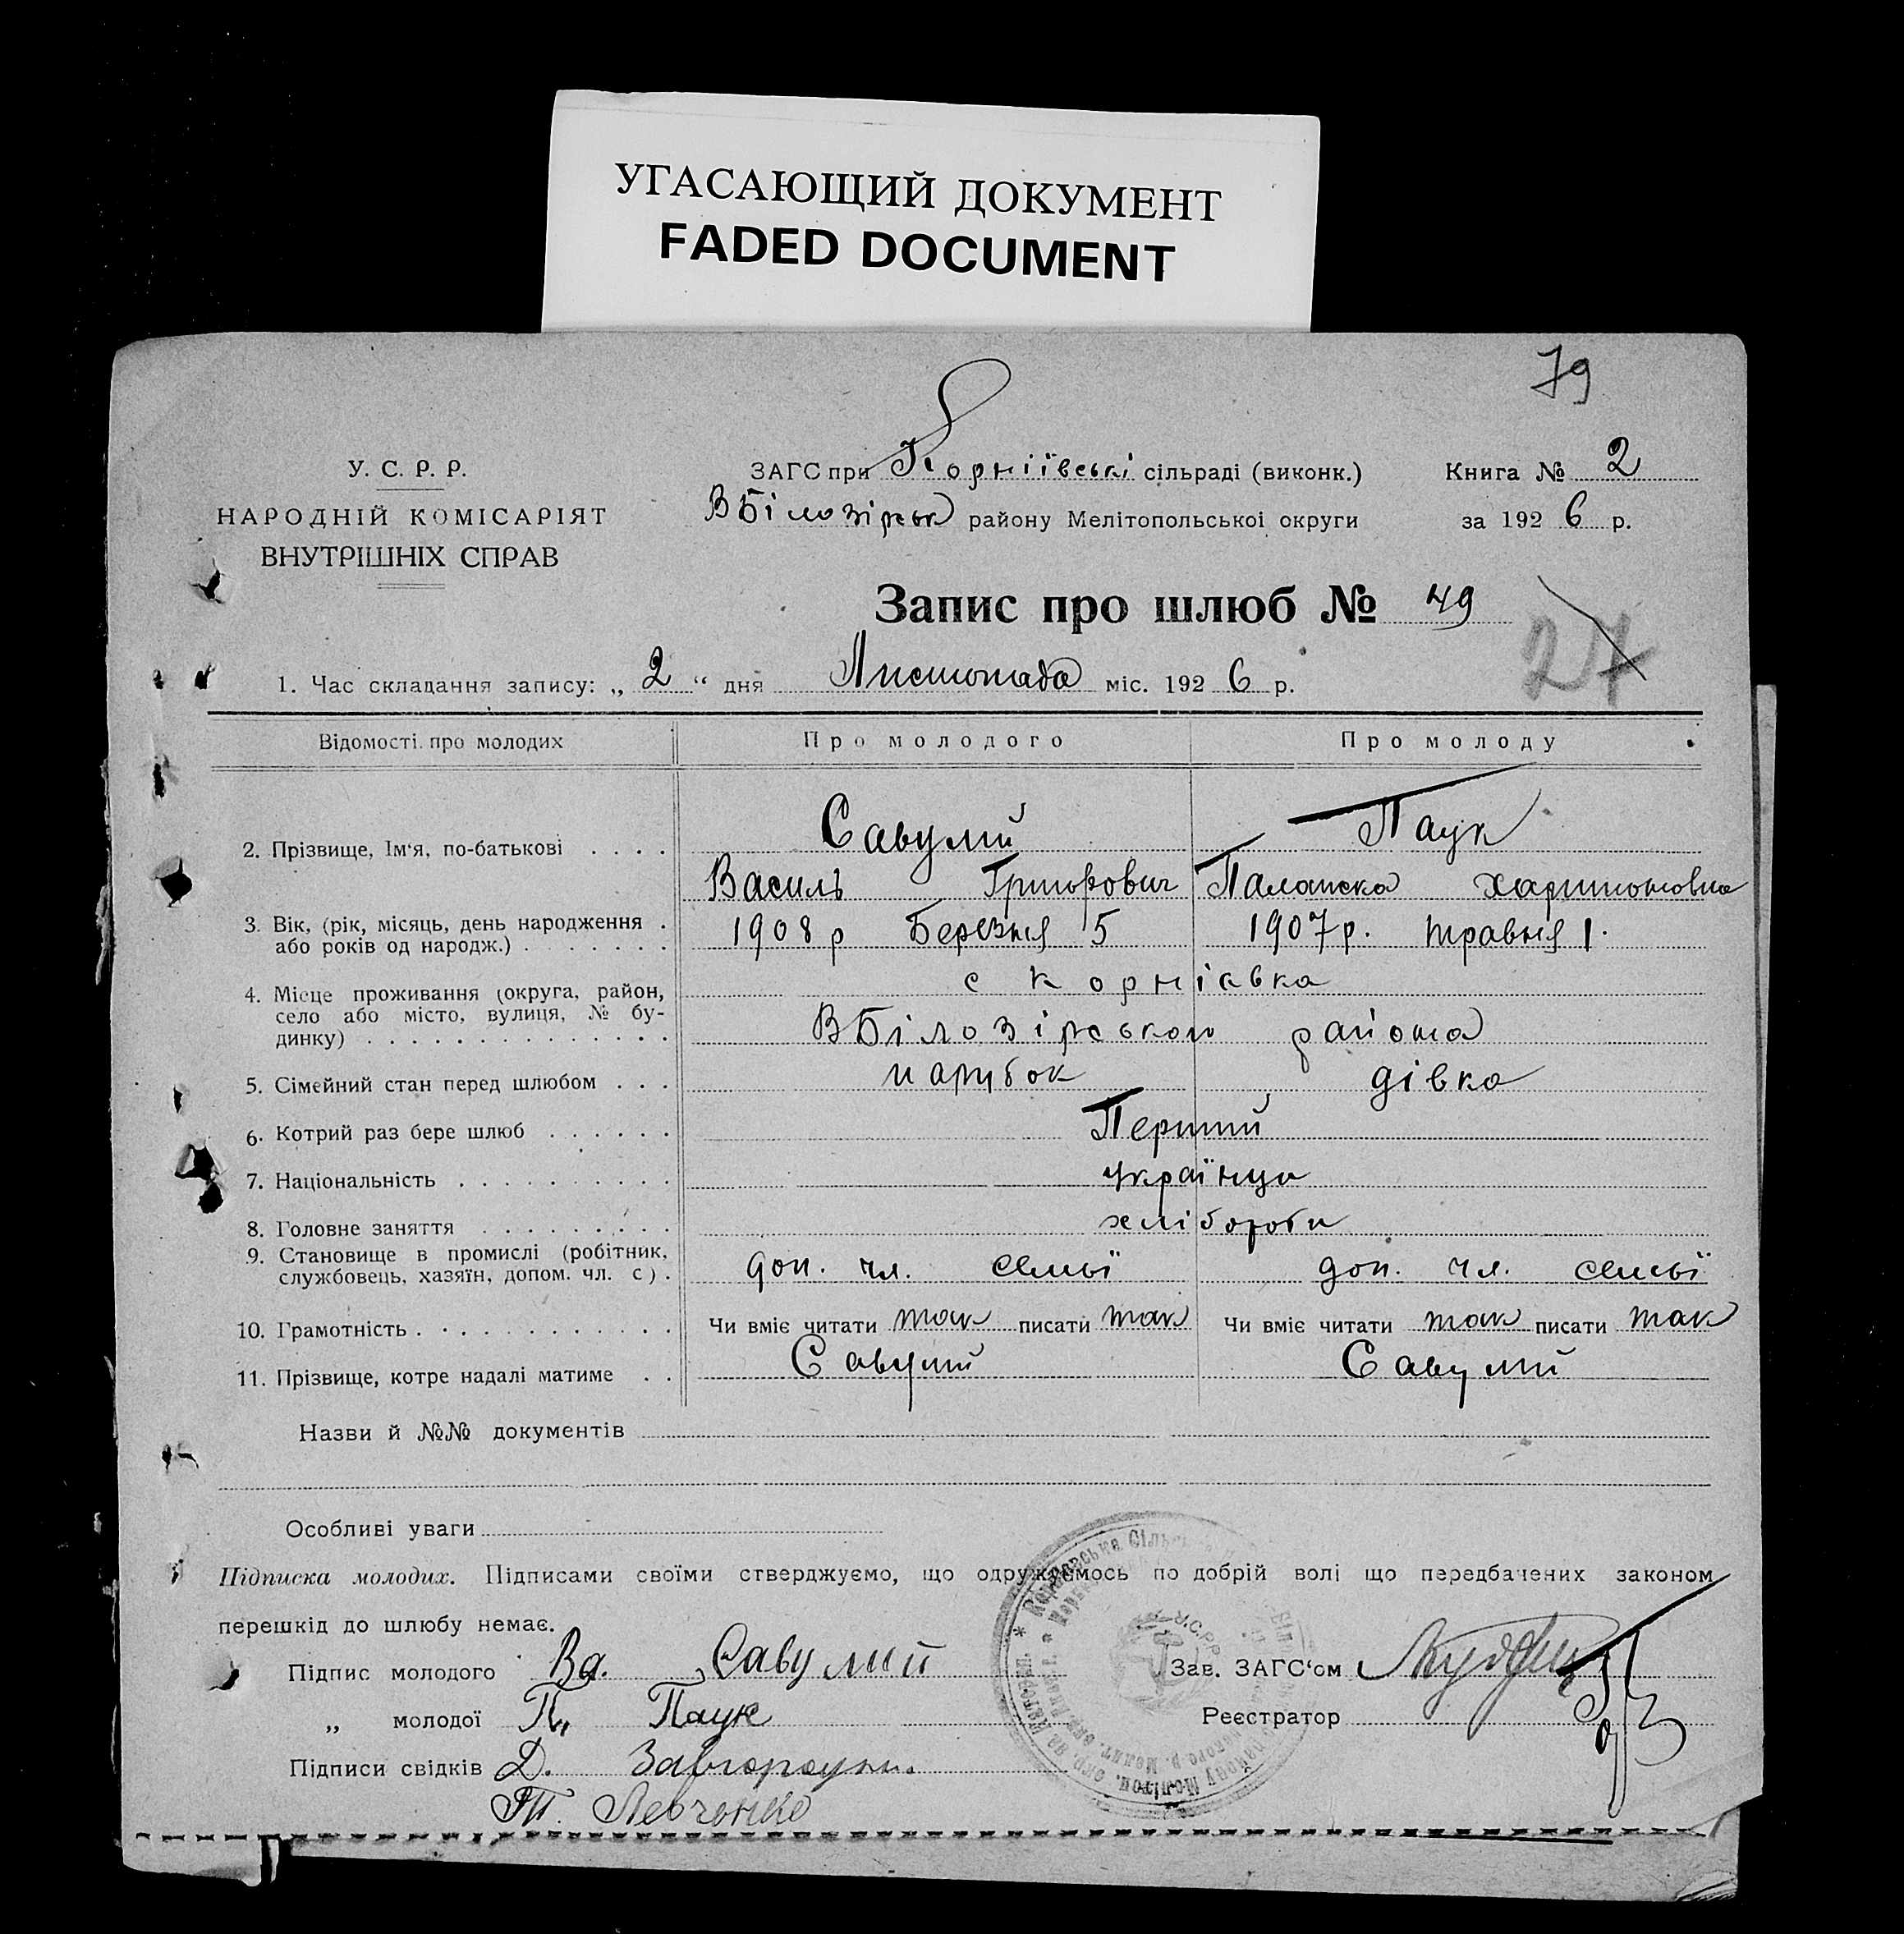 УГАСАЮЩИЙ ДОКУМЕНТ
FADED DOCUMENT
79
У. С. Р. Р.
НАРОДНІЙ КОМІСАРІЯТ
ВНУТРІШНІХ СПРАВ
ЗАГС при Корніївські сільраді (виконк.)
ВБілозірськ району Мелітопольської округи
Книга № 2
за 1926 р.
Запис про шлюб № 49
27
1. Час складання запису: „ 2 “ дня Листопада міс. 1926 р.
Відомості про молодих Про молодого Про молоду
2. Прізвище, Ім'я, по-батькові . . . . Савулий Паук
Василь Григорович Палашка Харитоновна
3. Вік, (рік, місяць, день народження . 1908 р Березня 5 1907 р. травня 1.
або років од народж.) . . . . . . .
4. Місце проживання (округа, район, с Корнієвка
село або місто, вулиця, № бу-
динку) . . . . . . . . . . . . . . ВБілозірського района
5. Сімейний стан перед шлюбом . . . парубок дівка
6. Котрий раз бере шлюб . . . . . . Перший
7. Національність . . . . . . . . . . українци
8. Головне заняття . . . . . . . . . хлібороби
9. Становище в промислі (робітник,
службовець, хазяїн, допом. чл. с) . доп. чл. семьї доп. чл. семьї
10. Грамотність . . . . . . . . . . . . Чи вміє читати так писати так Чи вміє читати так писати так
11. Прізвище, котре надалі матиме . . Савулий Савулий
Назви й №№ документів
Особливі уваги
Підписка молодих. Підписами своїми стверджуємо, що одружуємось по добрій волі що передбачених законом
перешкід до шлюбу немає.
Підпис молодого Ва. Савулий
Зав. ЗАГС'ом
„ молодої П. Паук
Реєстратор
Підписи свідків Д.
Т. Левченко
У.С.Р.Р.